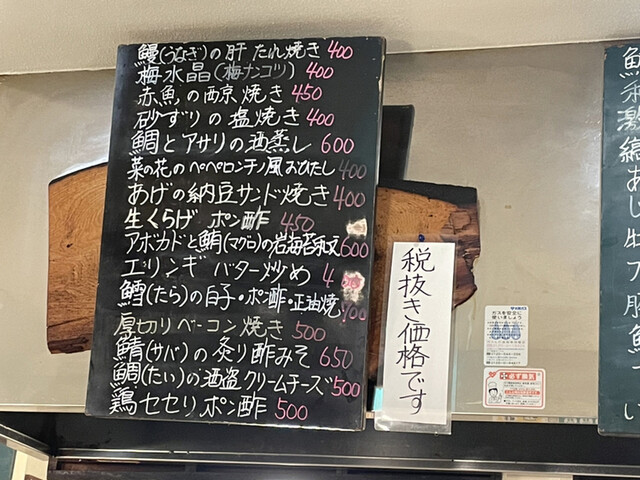 鰻(うなぎ)の肝 たれ焼き 400
梅水晶(梅ナンコツ) 400
赤魚の西京焼き 450
砂ずりの塩焼き 400
鯛とアサリの酒蒸し 600
菜の花のペペロンチノ風おひたし 400
あげの納豆サンド焼き 400
生くらげ ポン酢 450
アボカドと鮪(マグロ)の岩海苔和え 600
エリンギ バター炒め 4
鱈(たら)の白子・ポン酢・正油焼 700
厚切りベーコン焼き 500
鯖(サバ)の炙り酢みそ 650
鯛(たい)の酒盗クリームチーズ 500
鶏セセリ ポン酢 500
税抜き価格です
ガスを安全に
使いましょう